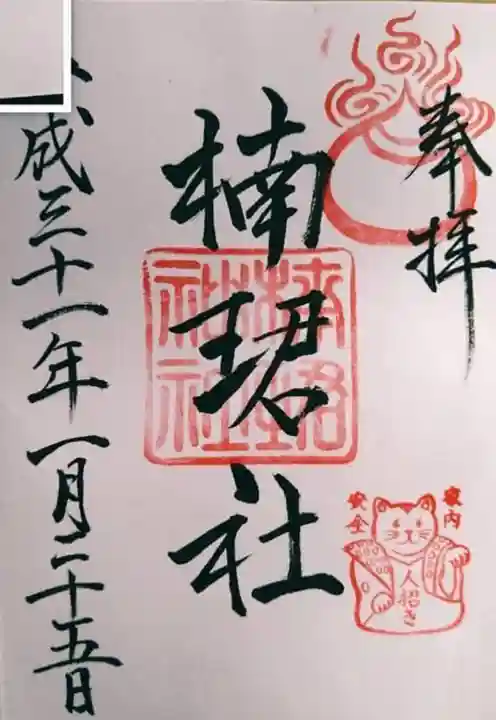 奉拝
楠珺社
楠珺社社
家内
安全
人招き
成三十一年一月二十五日